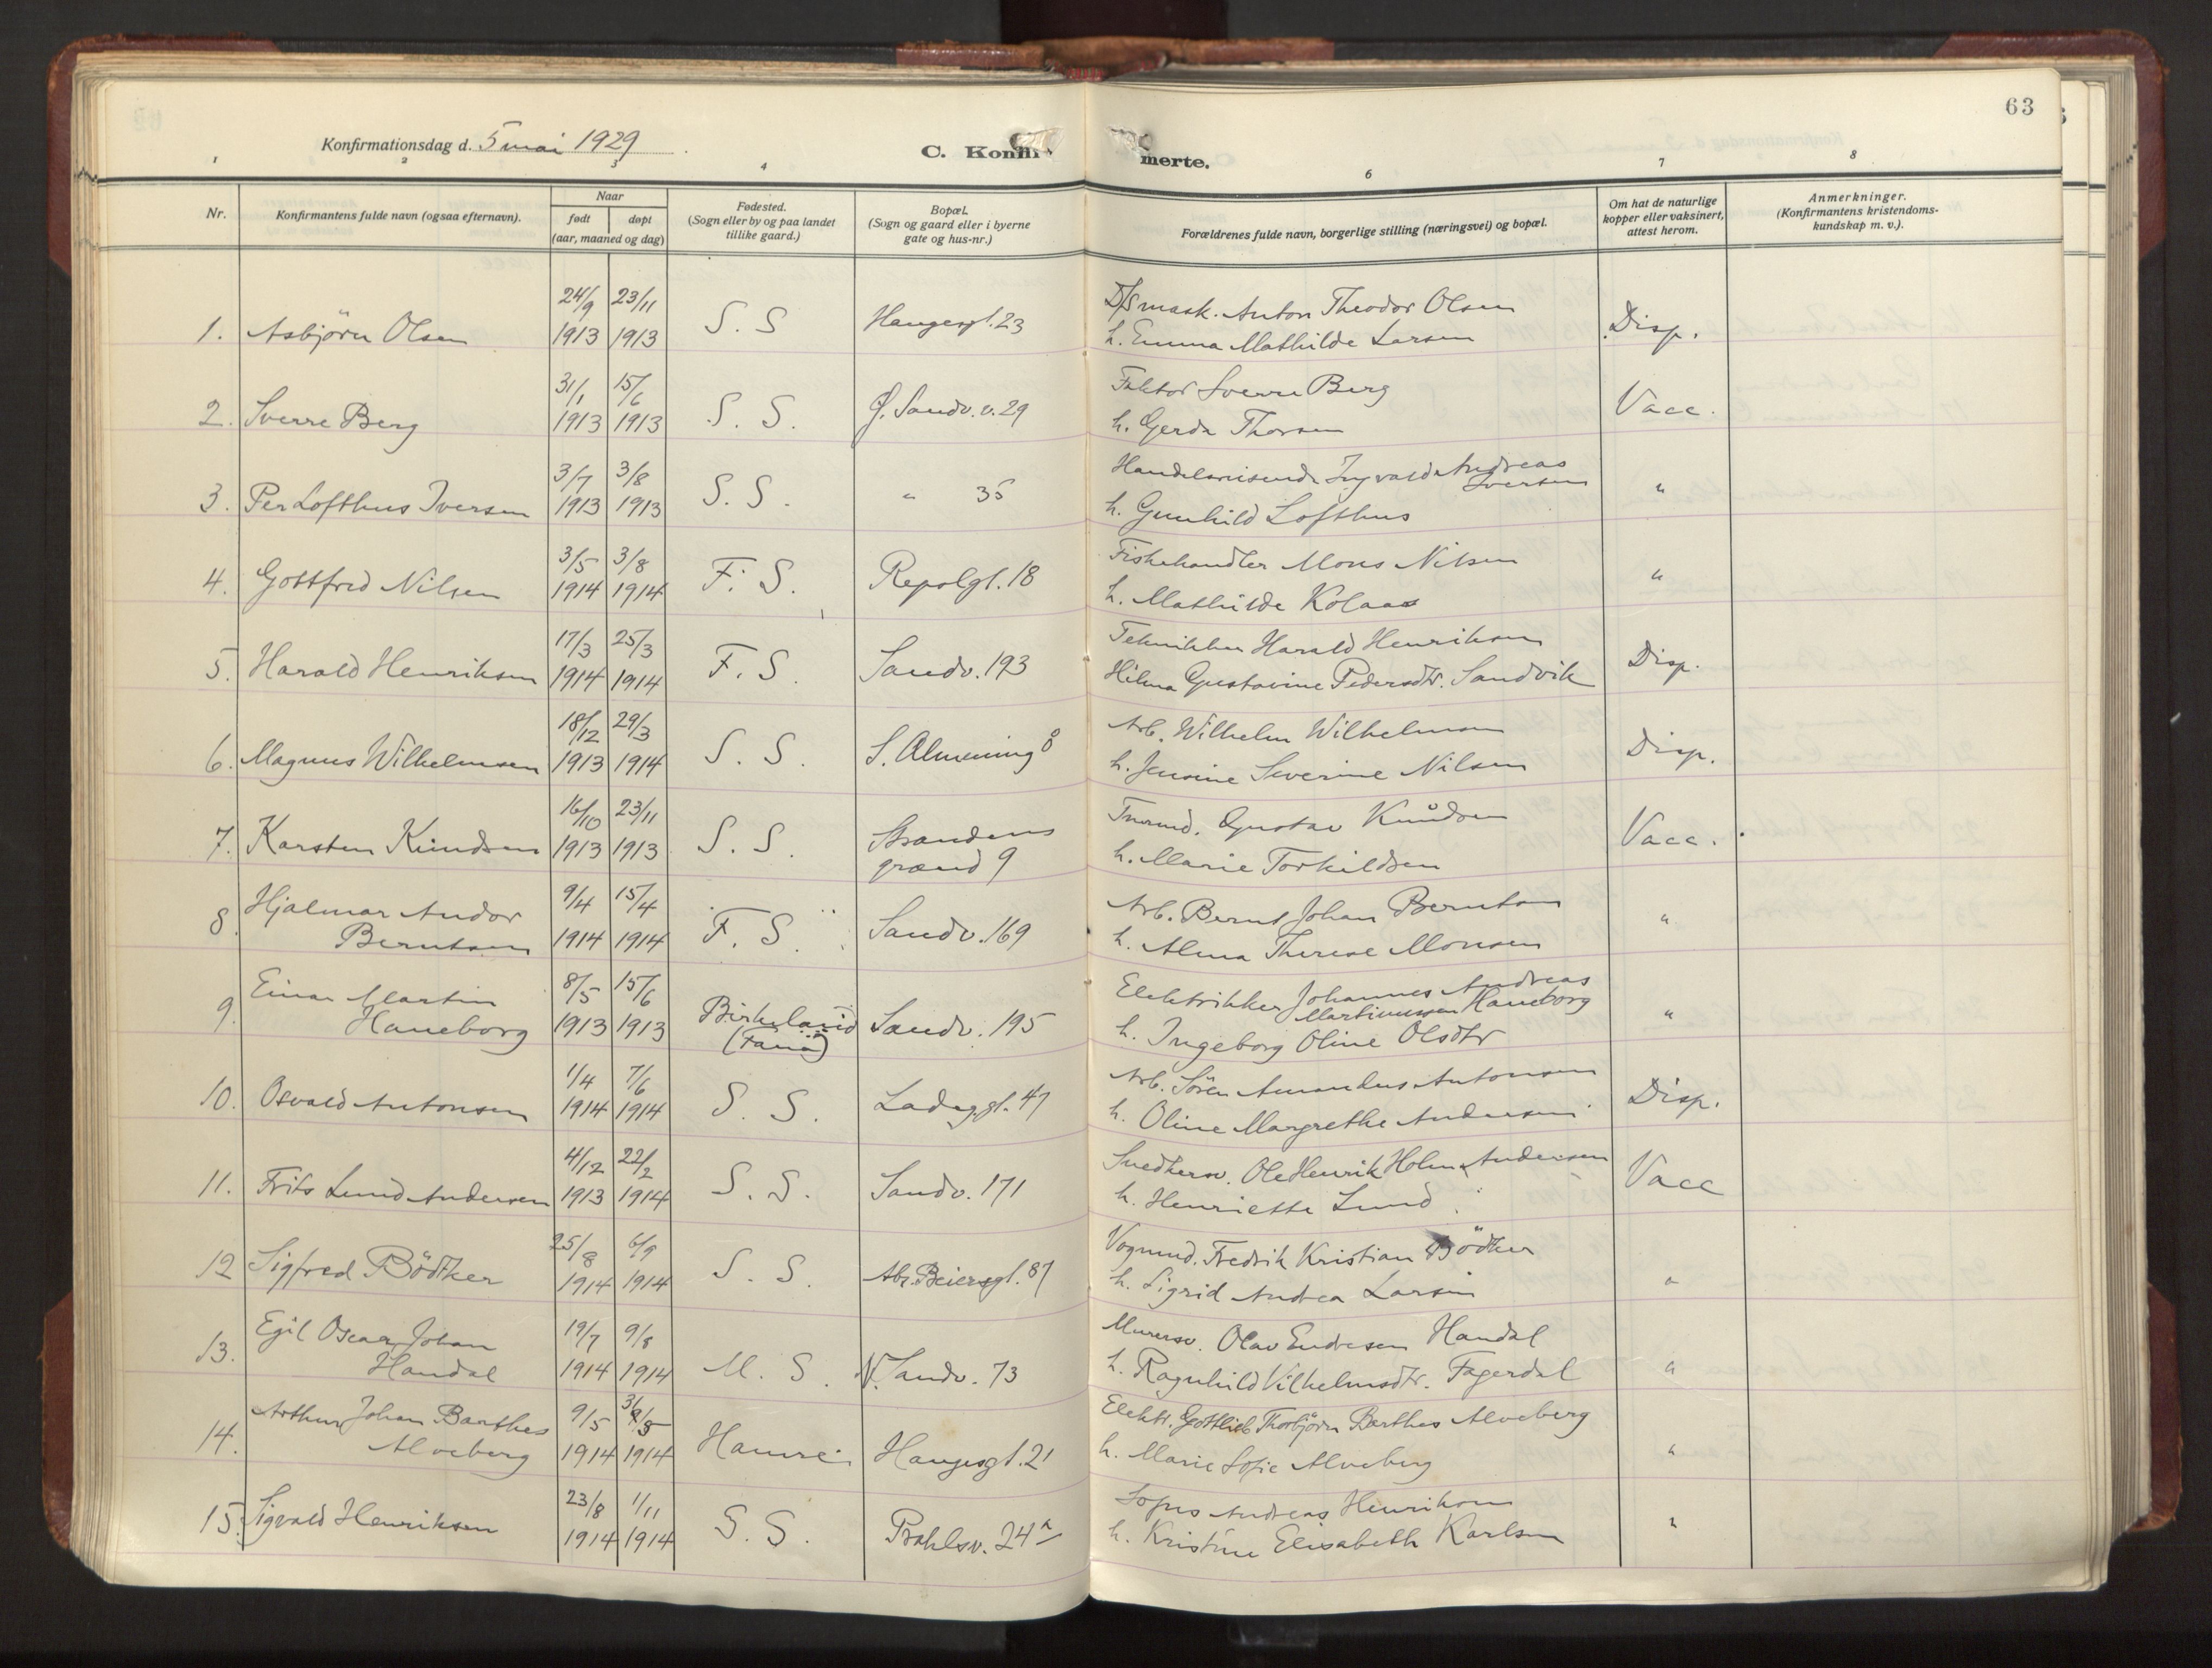 63
Konfirmationsdag d. 5 mai 1929
C. Konfir merte.
1 2 3 4 6 7 8
Nr.
Konfirmantens fulde navn (ogsaa efternavn).
Naar
født døpt
(aar, maaned og dag)
Fødested.
(Sogn eller by og paa landet
tillike gaard.)
Bopæl.
(Sogn og gaard eller i byerne
gate og hus-nr.)
Forældrenes fulde navn, borgerlige stilling (næringsvei) og bopæl.
Om hat de naturlige
kopper eller vaksinert,
attest herom.
Anmerkninger.
(Konfirmantens kristendoms-
kundskap m. v.).
24/9 23/11 D/S mask. Anton Theodor Olsen
1. Asbjörn Olsen 1913 1913 S. S Haugesgt. 23 h. Emma Mathilde Larsen Disp.
31/1 15/6 Faktor Sverre Berg
2. Sverre Berg 1913 1913 S. S. Ø. Sandv. v. 29 h. Gerda Thorsen Vacc.
3/7 3/8 Handelsreisende Ingvald Andreas
Iversen
3. Per Lofthus Iversen 1913 1913 S. S. " 35 h. Gunhild Lofthus "
3/5 3/8 Fiskehandler Mons Nilsen
4. Gottfred Nilsen 1914 1914 F. S. Repslgt. 18 h. Mathilde Kolaas "
17/3 25/3 Tekniker Harald Henriksen
5. Harald Henriksen 1914 1914 F. S. Sandv. 193 Hilma Gustavine Pedersdtr. Sandvik Disp.
18/12 29/3 Arb. Wilhelm Wilhelmsen
6. Magnus Wilhelmsen 1913 1914 S. S. S. Almenning 8 h. Jensine Severine Nilsen Disp.
16/10 23/11 Strandens Gustav Knudsen
7. Karsten Knudsen 1913 1913 S. S. grænd 9 h. Marie Torkildsen Vacc.
Hjalmar Andor 9/4 15/4 Arb. Bernt Johan Berntsen
8. Berntsen 1914 1914 F. S. Sandv. 169 h. Alma Therese Monsen "
Einar Martin 8/5 15/6 Elektrikker Johannes Andreas
Martinussen Haneborg
9. Haneborg 1913 1913 Birkeland Sandv. 195 h. Ingeborg Oline Olsdtr "
(Fana)
1/4 7/6 Arb. Sören Amandus Antonsen
10. Osvald Antonsen 1914 1914 S. S. Ladeggt. 47 h. Oline Margrethe Andersen Disp.
4/12 22/2 Snedkersv. Ole Henrik Holm Andersen
11. Frits Lund Andersen 1913 1914 S. S. Sandv. 171 h. Henriette Lund Vacc
25/8 6/9 Vognmd. Fredrik Kristian Bödtker
12 Sigfred Bödtker 1914 1914 S. S. Abr. Beiersgt. 87 h. Sigrid Andrea Larsen "
Egil Oscar Johan 19/7 9/8 Murersv. Olav Endresen Handal
13. Handal 1914 1914 M. S. N. Sandv. 73 h. Ragnhild Vilhelmsdtr. Fagerdal "
Arthur Johan Barthes 9/5 31/5 Elektr. Gottlieb Thorbjörn Barthes Alveberg
14. Alveberg 1914 1914 Hamre Haugesgt. 21 h. Marie Sofie Alveberg "
23/8 1/11 Sofus Andreas Henriksen
15. Sigvald Henriksen 1914 1914 S. S. Prahlsv. 24 A h. Kristine Elisabeth Karlsen "